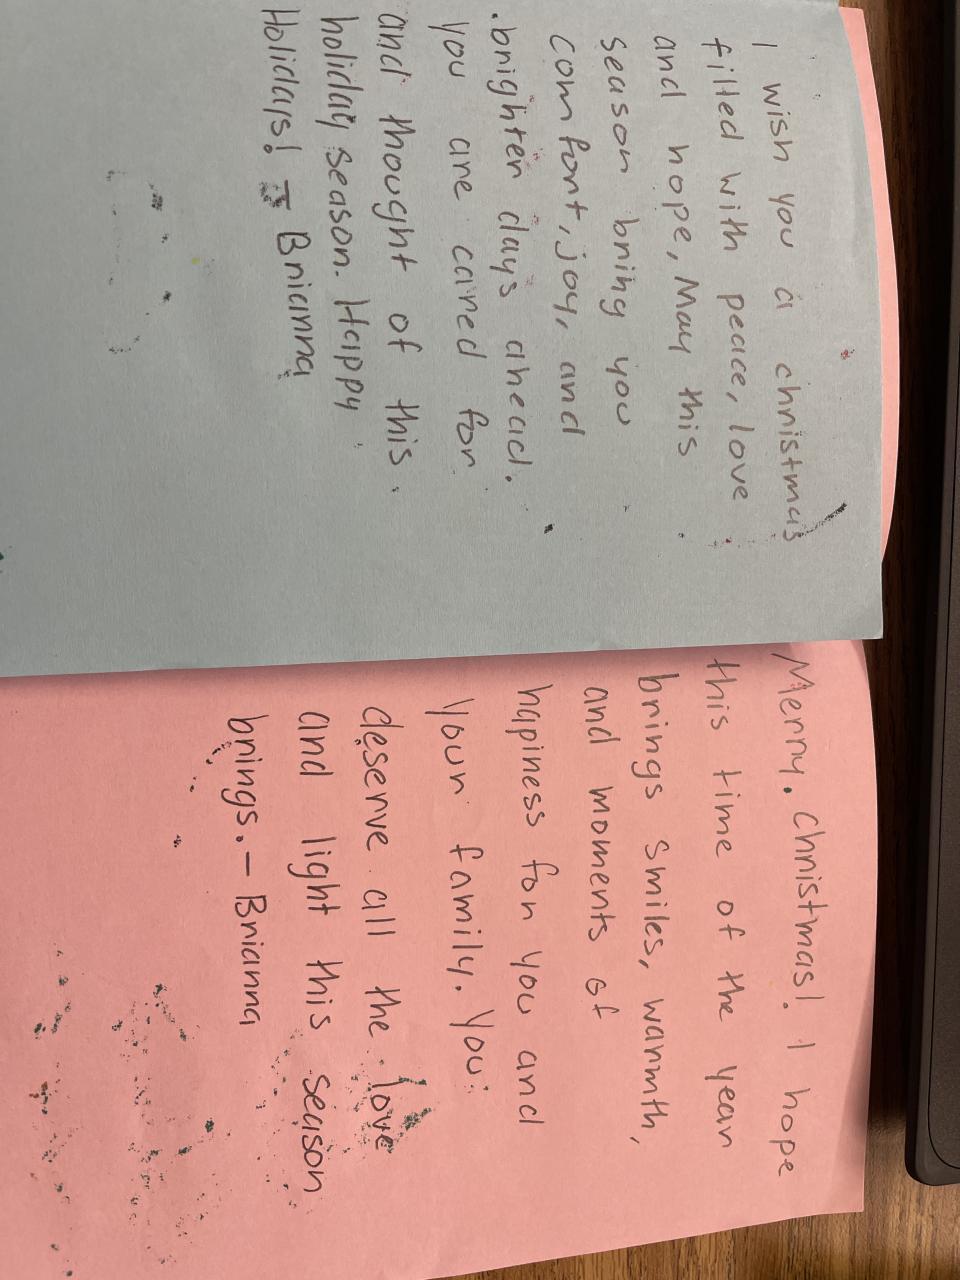 I wish you a christmas
filled with peace, love
and hope, May this
season bring you
comfort, joy, and
brighten days ahead.
You are cared for
and thought of this
holiday season. Happy
Holidays! - Brianna
Merry Christmas! I hope
this time of the year
brings smiles, warmth,
and moments of
hapiness for you and
your family. You
deserve all the love
and light this season
brings. - Brianna